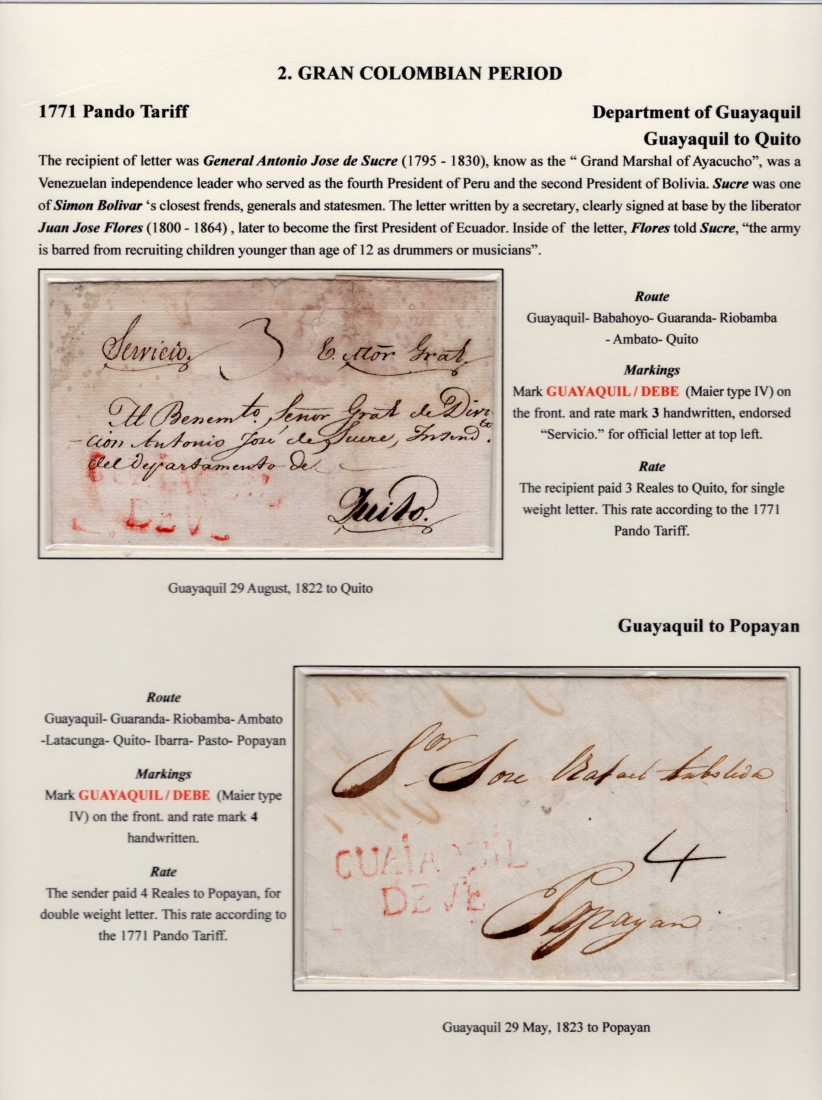 2. GRAN COLOMBIAN PERIOD
1771 Pando Tariff
Department of Guayaquil
Guayaquil to Quito
The recipient of letter was General Antonio Jose de Sucre (1795 - 1830), know as the “ Grand Marshal of Ayacucho”, was a
Venezuelan independence leader who served as the fourth President of Peru and the second President of Bolivia. Sucre was one
of Simon Bolivar ‘s closest frends, generals and statesmen. The letter written by a secretary, clearly signed at base by the liberator
Juan Jose Flores (1800 - 1864) , later to become the first President of Ecuador. Inside of the letter, Flores told Sucre, “the army
is barred from recruiting children younger than age of 12 as drummers or musicians”.
Servicio. 3 Gral.
Al Benemto. Señor Gral de Divi
-cion Antonio José de Sucre, Intendte.
del departamento de
Quito.
DEVE
Route
Guayaquil- Babahoyo- Guaranda- Riobamba
- Ambato- Quito
Markings
Mark GUAYAQUIL / DEBE (Maier type IV) on
the front. and rate mark 3 handwritten, endorsed
“Servicio.” for official letter at top left.
Rate
The recipient paid 3 Reales to Quito, for single
weight letter. This rate according to the 1771
Pando Tariff.
Guayaquil 29 August, 1822 to Quito
Guayaquil to Popayan
Route
Guayaquil- Guaranda- Riobamba- Ambato
-Latacunga- Quito- Ibarra- Pasto- Popayan
Markings
Mark GUAYAQUIL / DEBE (Maier type
IV) on the front. and rate mark 4
handwritten.
Rate
The sender paid 4 Reales to Popayan, for
double weight letter. This rate according to
the 1771 Pando Tariff.
Sor Jose Rafael
4
GUAIAQUIL
DEVE
Popayan
Guayaquil 29 May, 1823 to Popayan